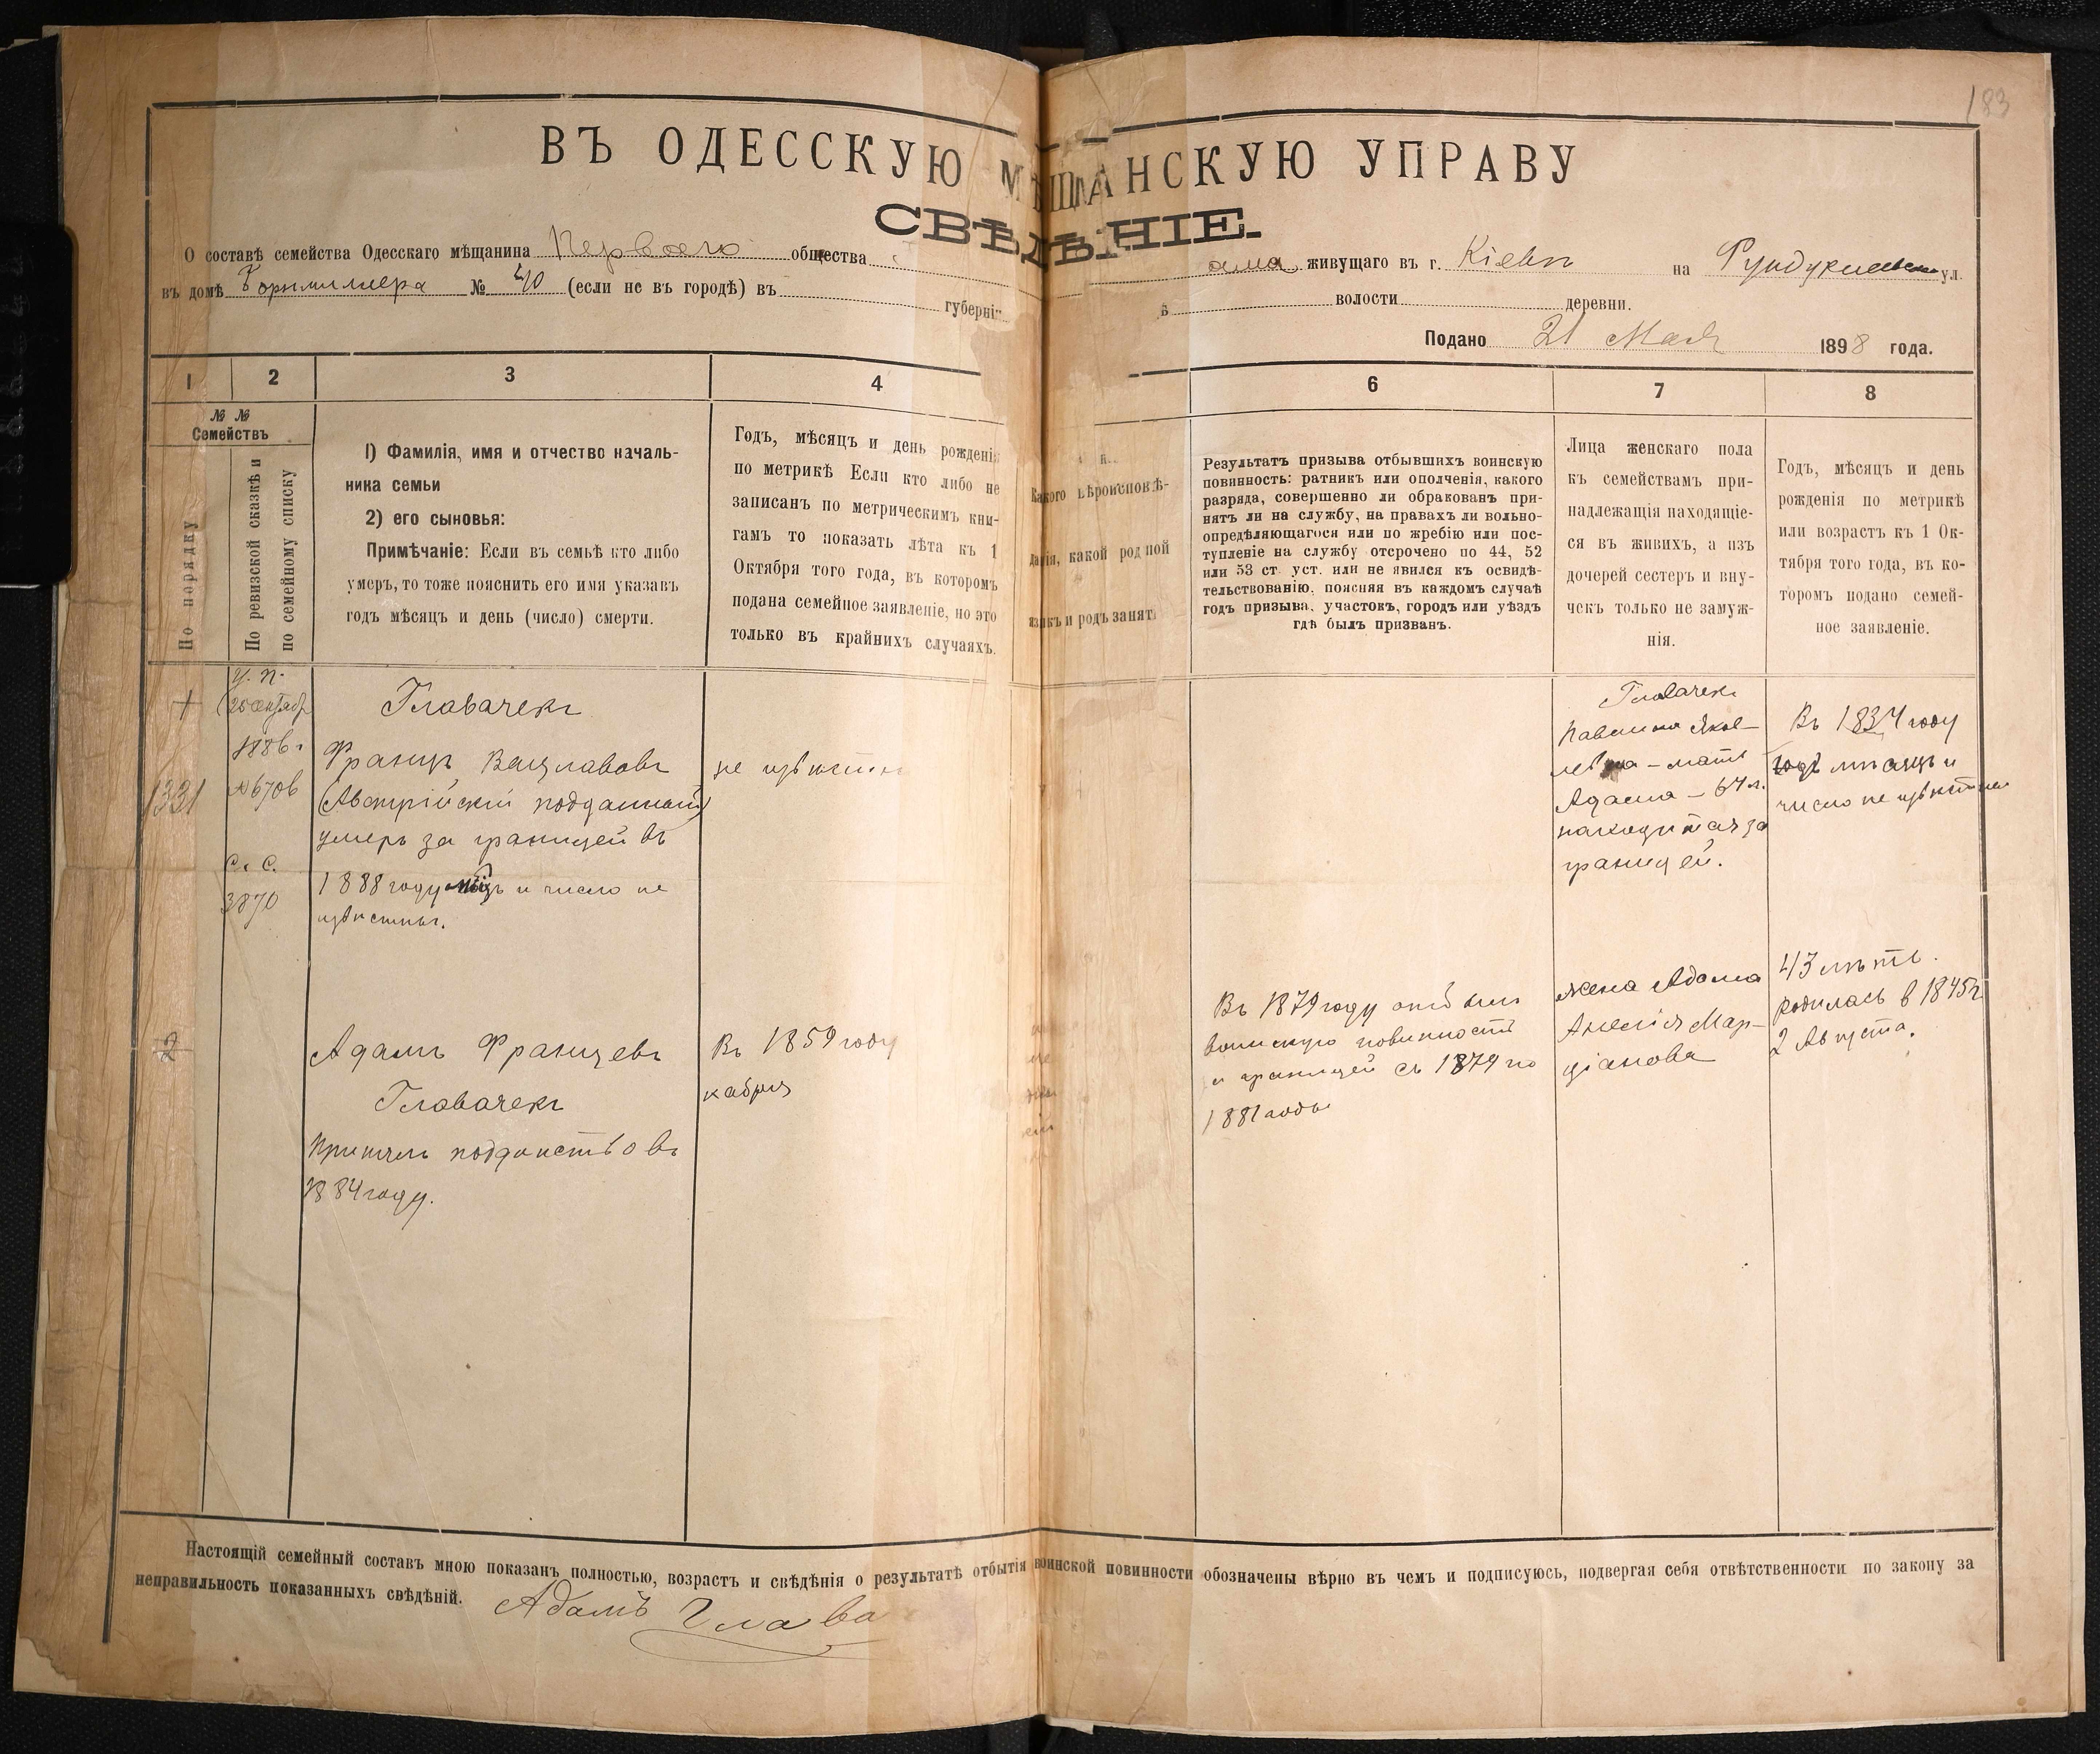 183
ВЪ ОДЕССКУЮ МѢЩАНСКУЮ УПРАВУ
СВѢДѢНІЕ.
О составѣ семейства Одесскаго мѣщанина Перваго общества
ама живущаго въ г. Кіевѣ на Фундуклеевской ул.
въ домѣ № 40 (если не въ городѣ) въ губерні
волости деревни.
Подано 21 Мая 1898 года.
1 2 3 4 6 7 8
№ №
Семействъ
По порядку
По ревизской сказкѣ и
по семейному списку
1) Фамилія, имя и отчество началь-
ника семьи
2) его сыновья:
Примѣчаніе: Если въ семьѣ кто либо
умеръ, то тоже пояснить его имя указавъ
годъ мѣсяцъ и день (число) смерти.
Годъ, мѣсяцъ и день рожденія
по метрикѣ Если кто либо не
записанъ по метрическимъ кни-
гамъ то показать лѣта къ 1
Октября того года, въ которомъ
подана семейное заявленіе, но это
только въ крайнихъ случаяхъ.
Какого вѣроисповѣ-
данія, какой родной
языкъ и родъ занят
Результатъ призыва отбывшихъ воинскую
повинность: ратникъ или ополченія, какого
разряда, совершенно ли обракованъ при-
нятъ ли на службу, на правахъ ли вольно-
опредѣляющагося или по жребію или пос-
тупленіе на службу отсрочено по 44, 52
или 53 ст уст. или не явился къ освидѣ-
тельствованію, поясняя въ каждомъ случаѣ
годъ призыва, участокъ, городъ или уѣздъ
гдѣ былъ призванъ.
Лица женскаго пола
къ семействамъ при-
надлежащія находящіе-
ся въ живихъ, а изъ
дочерей сестеръ и вну-
чекъ только не замуж-
нія.
Годъ, мѣсяцъ и день
рожденія по метрикѣ
или возрастъ къ 1 Ок-
тября того года, въ ко-
торомъ подано семей-
ное заявленіе.
1331
у. п.
(20 сентяб
1886 г
№ 6706
с. с.
3870
Главачекъ
Францъ Вацлавовъ
(Австрійскій подданный)
умеръ за границей въ
1888 году мѣсяцъ и число не
извѣстны.
не извѣстны
Главачекъ
Павлина Яков-
левна – мать
Адама – 64 л.
находится за
границей.
Въ 1834 году
мѣсяцъ и
число не извѣстны
2
Адамъ Францевъ
Главачекъ
Принялъ подданство въ
1884 году.
Въ 1859 году
кабря
Въ 1879 году отбылъ
воинскую повинность
границей съ 1879 по
1881 годъ
жена Адама
Анелія Мар-
ціанова
43 лѣтъ.
родилась в 1845 г.
2 Августа.
Настоящій семейный составъ мною показанъ полностью, возрастъ и свѣдѣнія о результатѣ отбытія воинской повинности обозначены вѣрно въ чемъ и подписуюсь, подвергая себя отвѣтственности по закону за
неправильность показанныхъ свѣдѣній. Адамъ Глава